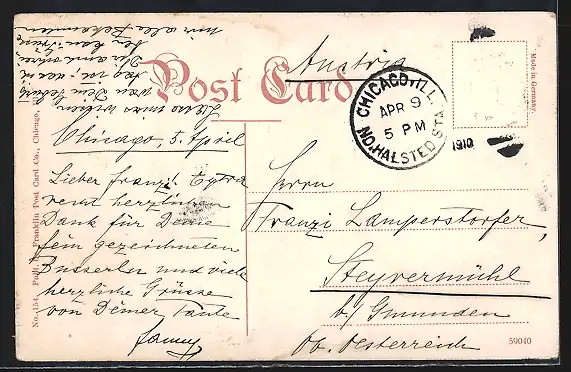 Post Card
Austria
CHICAGO, ILL.
APR 9
5 PM
NO. HALSTED STA.
1910
Made in Germany
No. 154. Publ. by Franklin Post Card Co., Chicago,
Lasse mich wissen
wann Dein
mir alle Bekannten
Chicago, 5. April
Lieber Franzi! Extra
herzlichen
Dank für Deine
fein gezeichneten
Busserln und viele
herzliche Grüsse
von Deiner Tante
Fanny
Herrn
Franzi Lamperstorfer,
Steyrermühl
b/ Gmunden
Ob. Oesterreich
59040